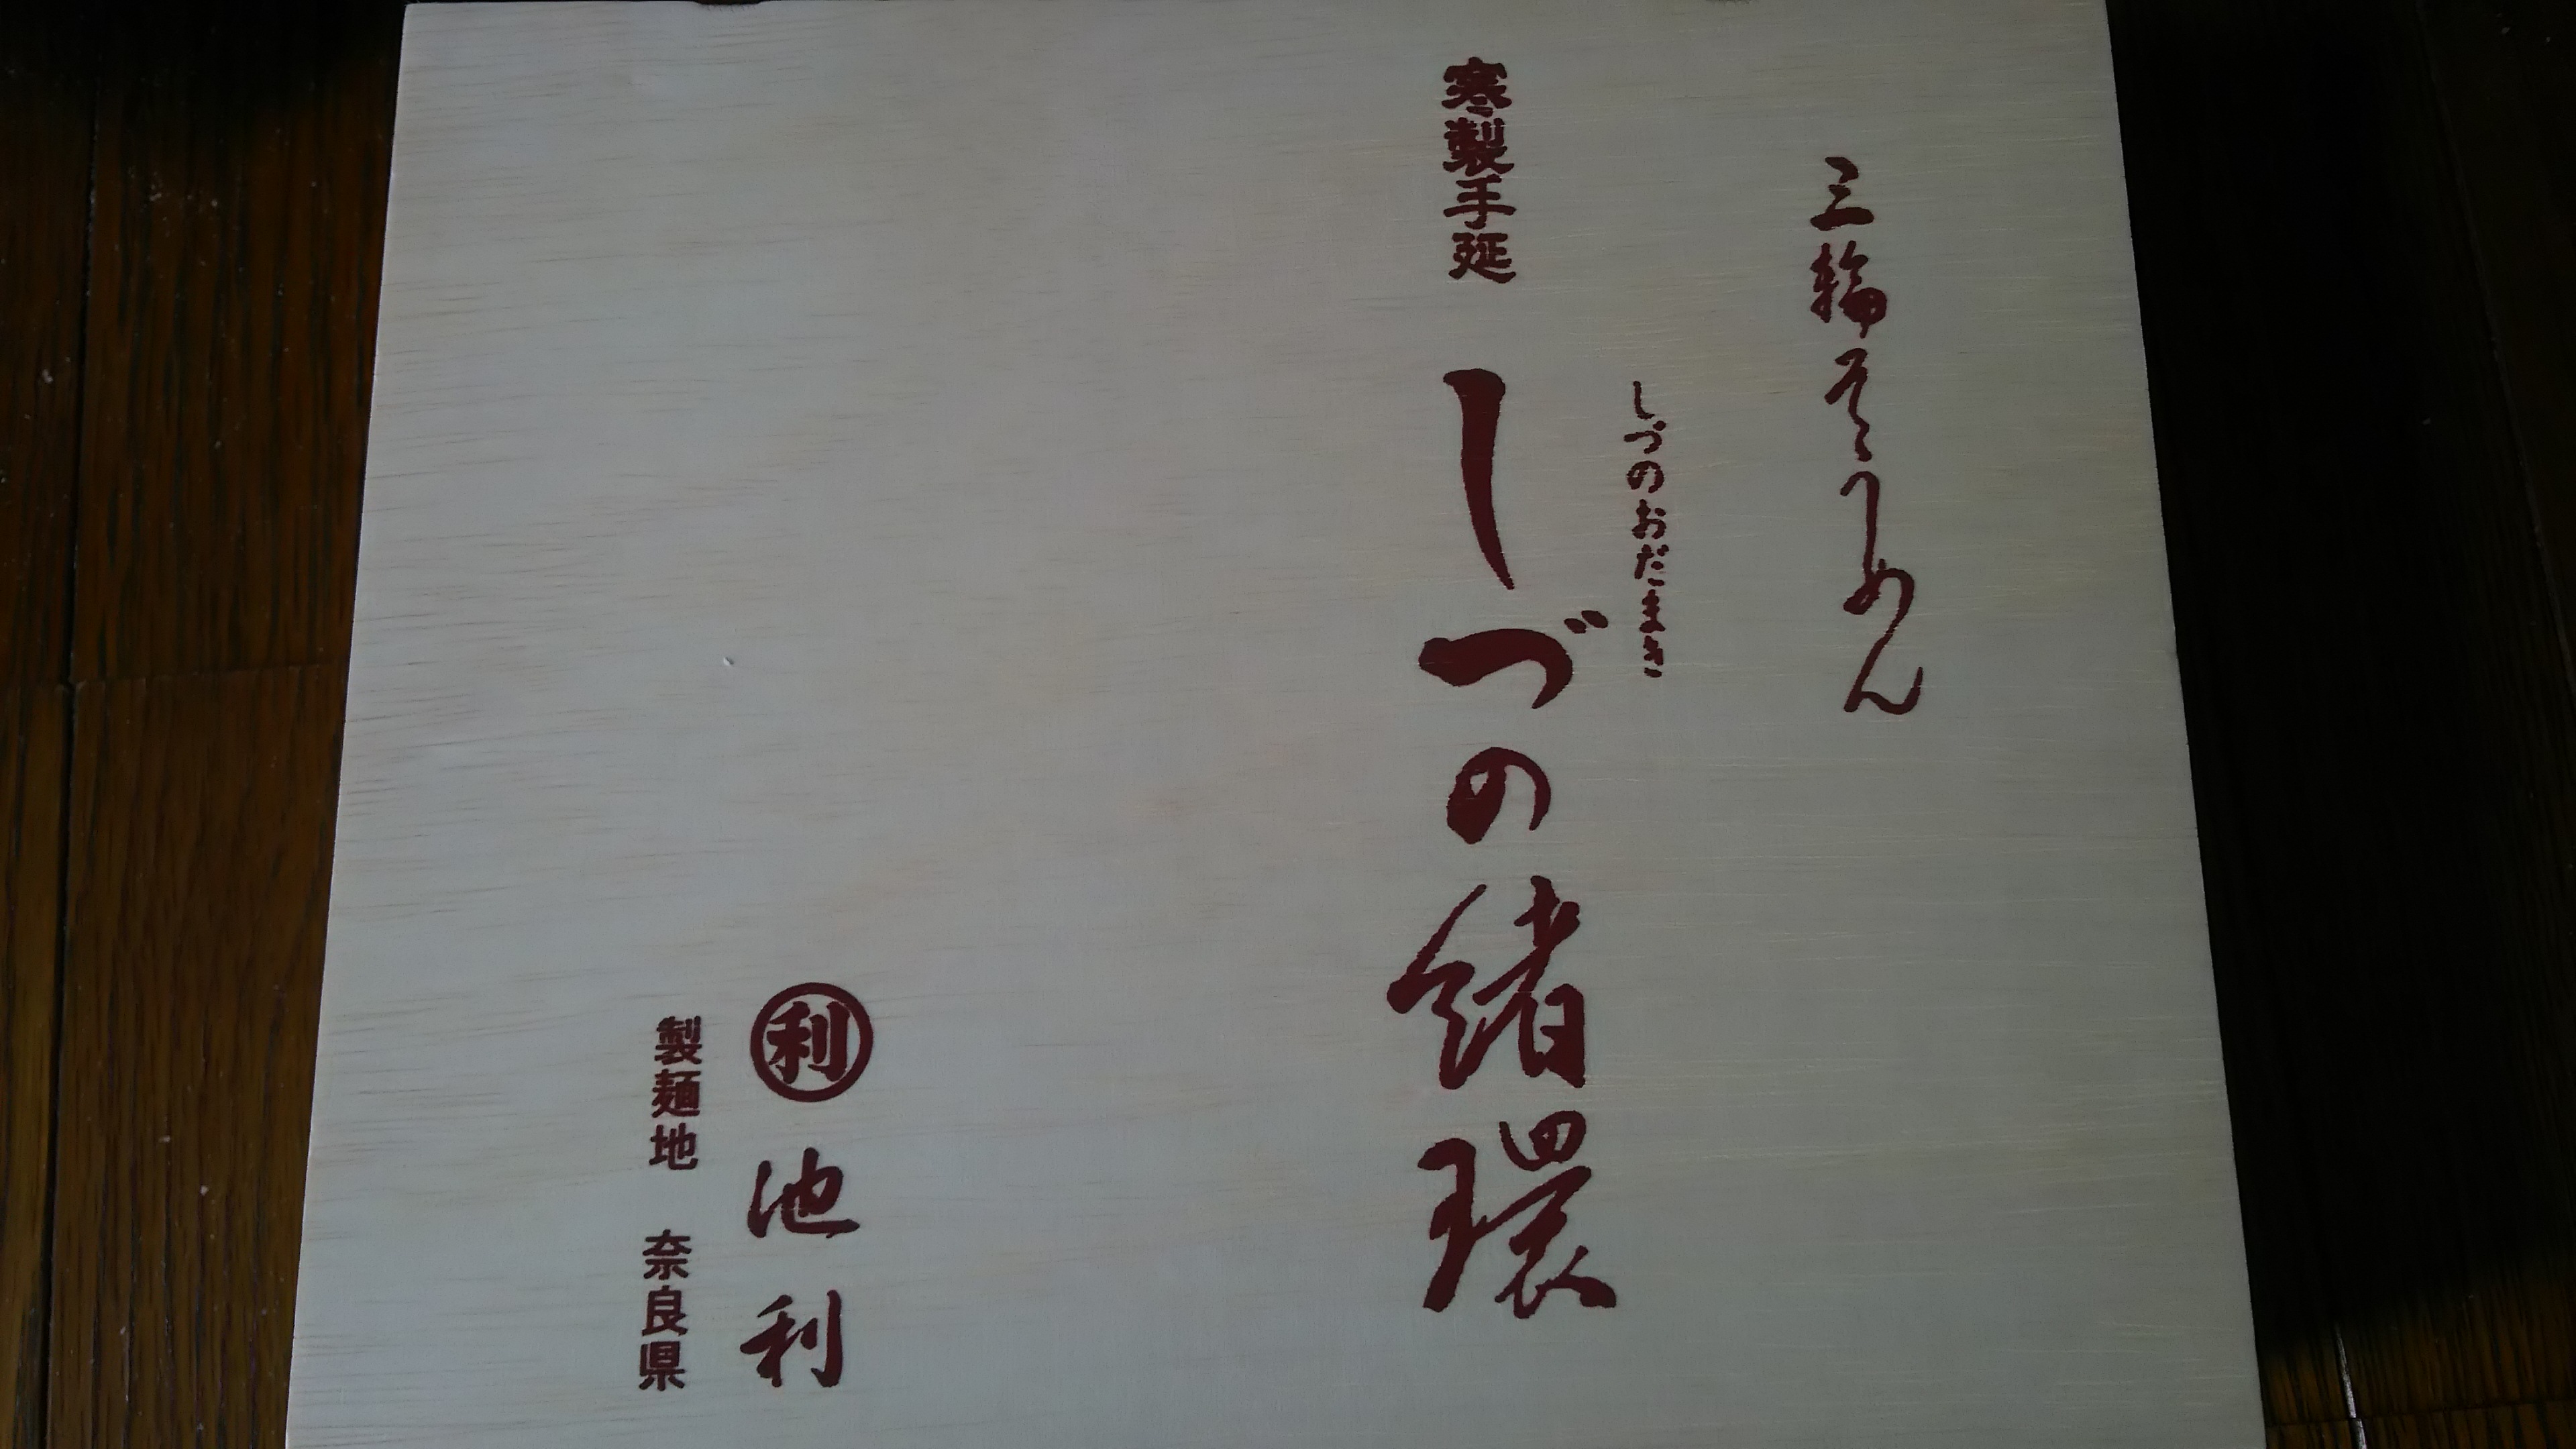 三輪そうめん
しづのおだまき
寒製手延 しづの緒環
利 池利
製麺地 奈良県